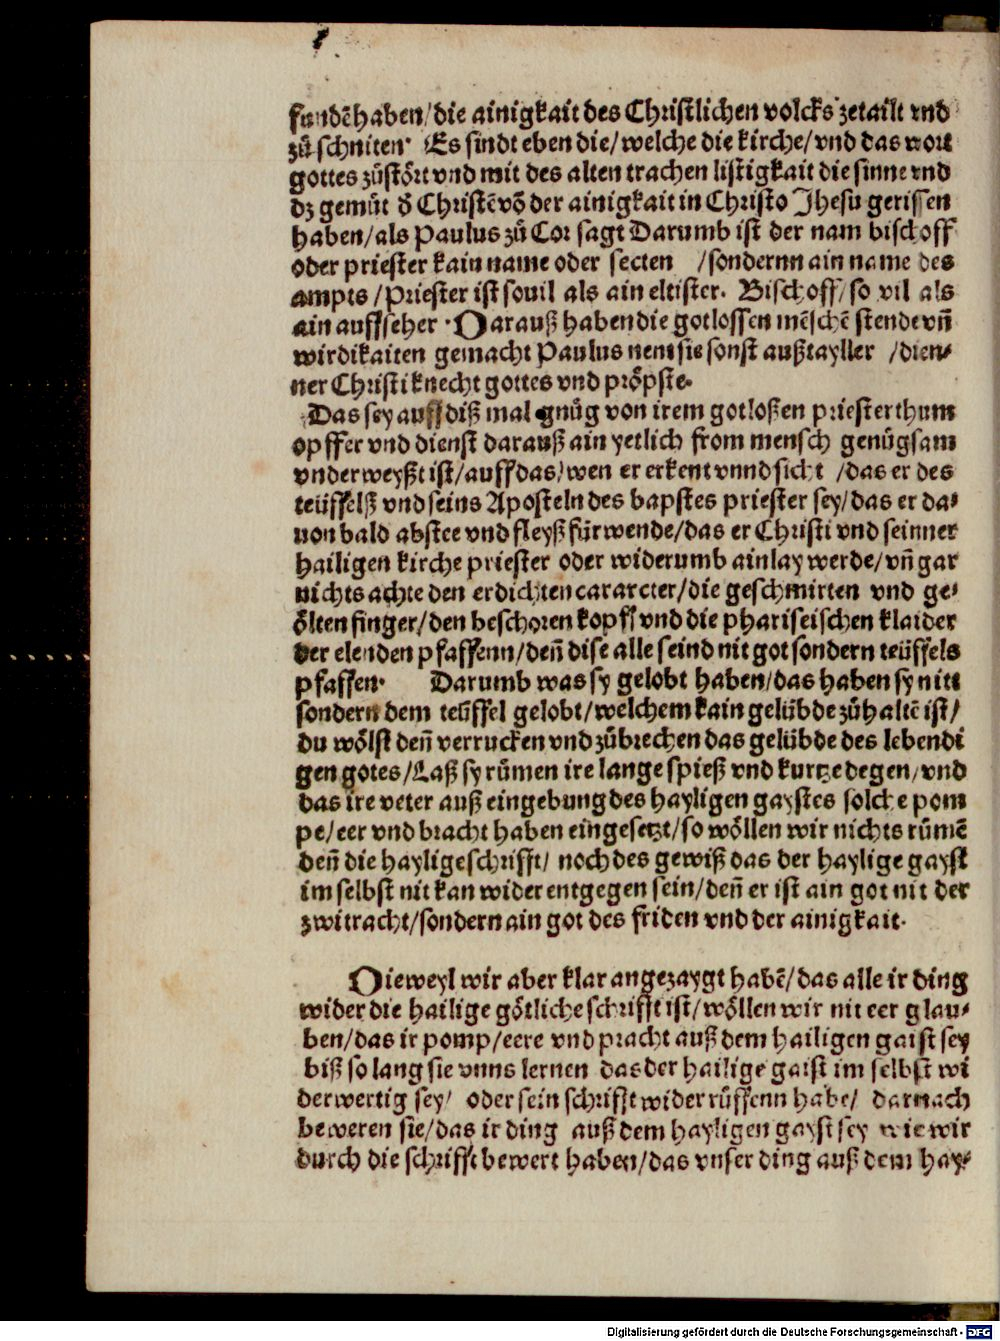 fundēhaben/die ainigkait des Christlichen volcks zetailt vnd
zů schniten· Es sindt eben die/welche die kirche/vnd das wort
gottes zůstört vnd mit des alten trachen listigkait die sinne vnd
dz gemüt d̕ Christē vō der ainigkait in Christo Jhesu gerissen
haben/als Paulus zů Cor sagt Darumb ist der nam bischoff
oder priester kain name oder secten /sondernn ain name des
ampts/Priester ist souil als ain eltister. Bischoff/so vil als
ain auffseher · Darauß haben die gotlossen mēschē stende vn̄
wirdikaiten gemacht Paulus nent sie sonst außtayller /dien⸗
ner Christi knecht gottes vnd pröpste.
Das sey auff diß mal gnůg von irem gotloßen priesterthum
opffer vnd dienst darauß ain yetlich from mensch genůgsam
vnderweyßt ist/auff das/wen er erkent vnnd sicht /das er des
teüffelß vnd seins Aposteln des bapstes priester sey/das er da⸗
uon bald abstee vnd fleyß fürwende/das er Christi vnd seinner
hailigen kirche priester oder widerumb ainlay werde/vn̄ gar
nichts achte den erdichten cararcter/die geschmirten vnd ge⸗
ölten finger/den beschoren kopff vnd die phariseischen klaider
der elenden pfaffenn/den̄ dise alle seind nit got sondern teüffels
pfaffen· Darumb was sy gelobt haben/das haben sy nitt
sondern dem teüffel gelobt/welchem kain gelübde zůhaltē ist/
du wölst den̄ verrucken vnd zůbrechen das gelübde des lebendi
gen gotes/Laß sy rümen ire lange spieß vnd kurtze degen/vnd
das ire veter auß eingebung des hayligen gaystes solche pom
pe/eer vnd bracht haben eingesetzt/so wöllen wir nichts rümē
den̄ die haylige schrifft/ noch des gewiß das der haylige gayst
im selbst nit kan wider entgegen sein/den̄ er ist ain got nit der
zwitracht/sondern ain got des friden vnd der ainigkait.
Dieweyl wir aber klar angezaygt habē/das alle ir ding
wider die hailige götliche schrifft ist/wöllen wir nit eer glau⸗
ben/das ir pomp/eere vnd pracht auß dem hailigen gaist sey
biß so lang sie vnns lernen das der hailige gaist im selbst wi
derwertig sey/ oder sein schrifft widerrüffenn habe/ darnach
beweren sie/das ir ding auß dem hayligen gayst sey wie wir
durch die schrifft bewert haben/das vnser ding auß dem hay⸗
Digitalisierung gefördert durch die Deutsche Forschungsgemeinschaft - DFG